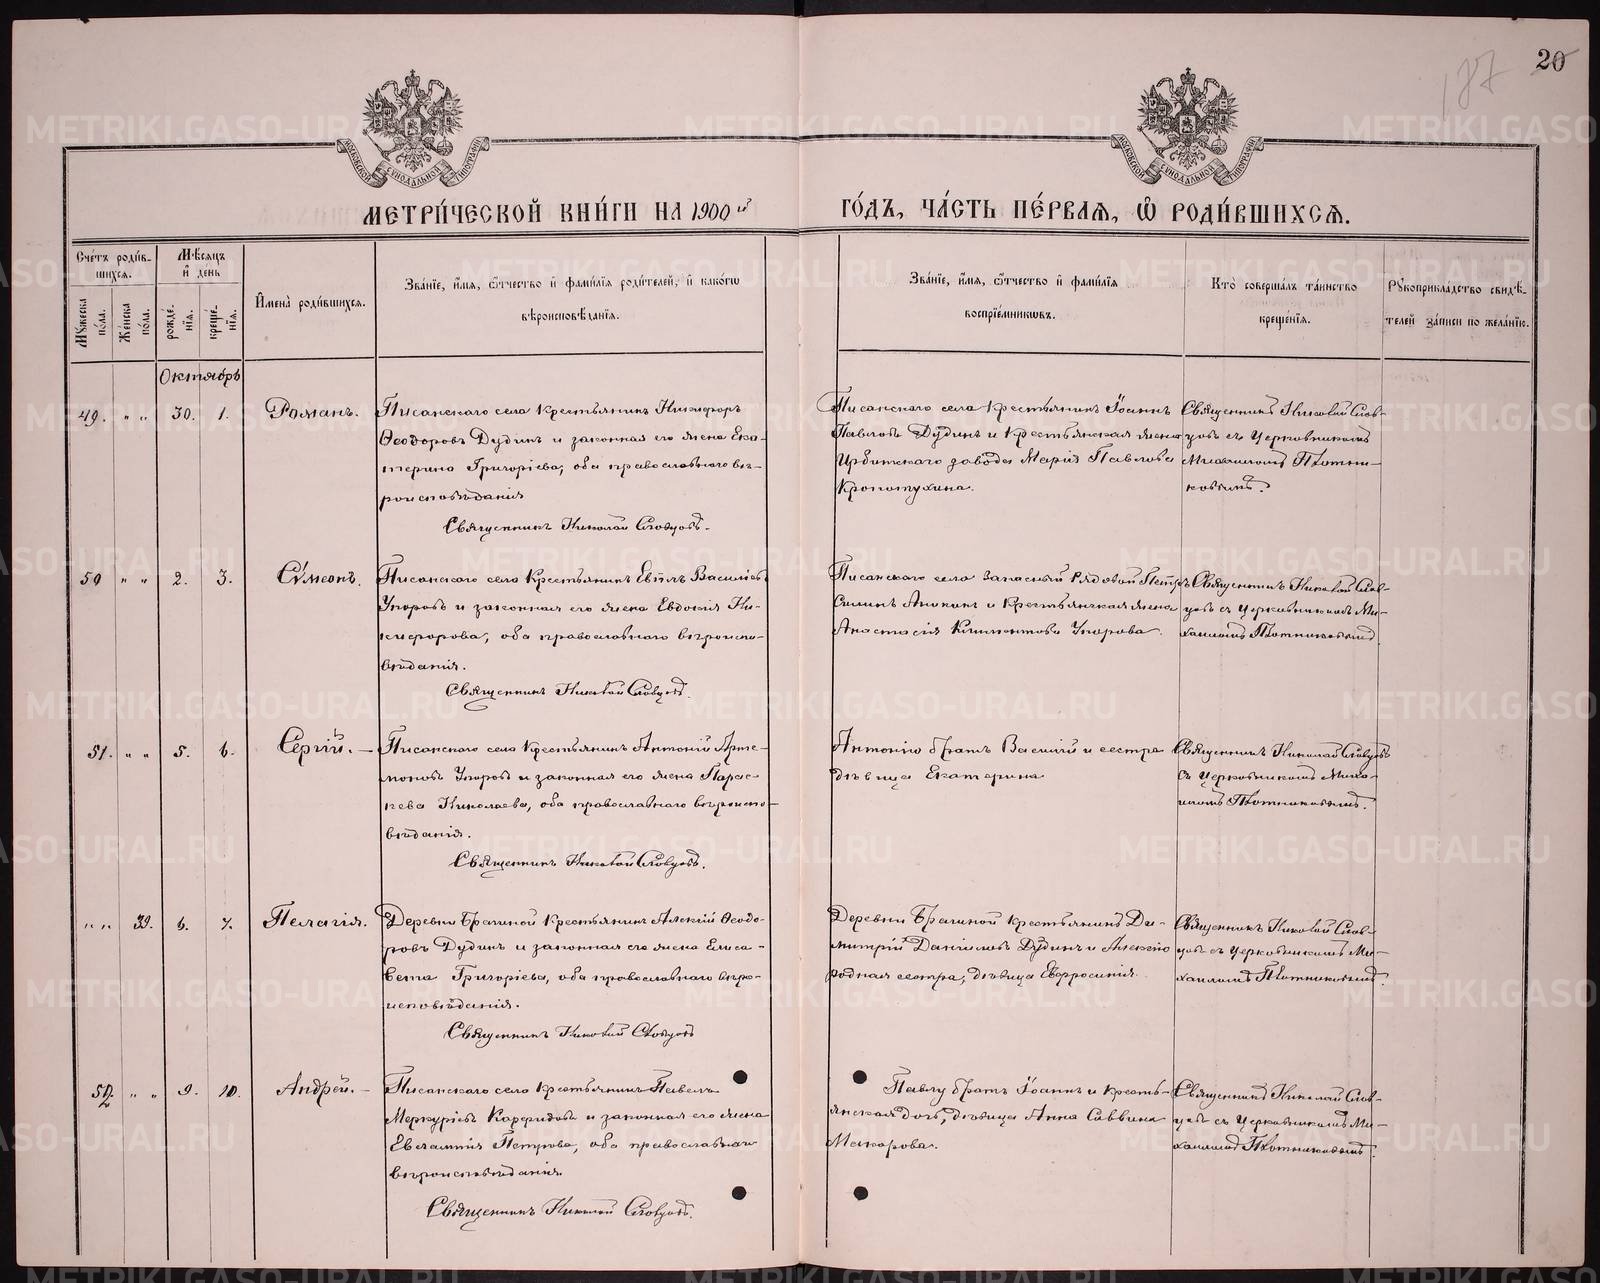 20
187
МЕТРИ́ЧЕСКОЙ КНИ́ГИ НА 1900й ГО́ДЪ, ЧА́СТЬ ПЕ́РВАЯ, Ѡ РОДИ́ВШИХСЯ.
Счéтъ роди́в-
шихся.
Мѣ́сяцъ
и҆ дéнь
Мꙋ́жеска по́ла.
Жéнска по́ла.
рождé-
нїя.
крещé-
нїя.
И҆менà роди́вшихся.
Зва́нїе, и҆́мя, ѻ҆́тчество и҆ фами́лїя роди́телей, и҆ како́гѡ
вѣроисповѣ́данїя.
Зва́нїе, и҆́мя, ѻ҆́тчество и҆ фами́лїя
воспрїéмникѡвъ.
Кто̀ соверша́лъ та́инство
крещéнїя.
Рꙋкоприкла́дство свидѣ́-
телей за́писи по жела́нїю.
Октябрь
49. " " 30. 1. Романъ.
Писанскаго села крестьянинъ Никифоръ
Ѳеодоровъ Дудинъ и законная его жена Ека-
терина Григоріева, оба православнаго вѣ-
роисповѣданія
Священникъ Николай Словцовъ.
Писанскаго села крестьянинъ Іоаннъ
Павловъ Дудинъ и крестьянская жена
Ирбитскаго завода Марія Павлова
Кропотухина.
Священникъ Николай Слов-
цовъ съ Церковникомъ
Михаиломъ Плотни-
ковымъ.
50 " " 2. 3. Сѵмеонъ.
Писанскаго села крестьянинъ Евѳилъ Васильевъ
Упоровъ и законная его жена Евдокія Ни-
кифорова, оба православнаго вѣроиспо-
вѣданія.
Священникъ Николай Словцовъ.
Писанскаго села запасный рядовой Петръ
Силинъ Аникинъ и крестьянская жена
Анастасія Климентова Упорова.
Священникъ Николай Слов-
цовъ съ Церковникомъ Ми-
хаиломъ Плотниковымъ
51. " " 5. 6. Сергій. –
Писанскаго села крестьянинъ Антоній Арте-
моновъ Упоровъ и законная его жена Парас-
кева Николаева, оба православнаго вѣроиспо-
вѣданія.
Священникъ Николай Словцовъ.
Антонію братъ Василій и сестра
дѣвица Екатерина
Священникъ Николай Словцовъ
съ Церковникомъ Миха-
иломъ Плотниковымъ.
" " 39. 6. 7. Пелагія.
Деревни Брагиной крестьянинъ Алексій Ѳеодо-
ровъ Дудинъ и законная его жена Елиса-
вета Григоріева, оба православнаго вѣро-
исповѣданія.
Священникъ Николай Словцовъ
Деревни Брагиной крестьянинъ Ди-
митрій Даніиловъ Дудинъ и Алексію
родная сестра, дѣвица Евфросинія.
Священникъ Николай Слов-
цовъ съ Церковникомъ Ми-
хаиломъ Плотниковымъ.
52. " " 9. 10. Андрей. –
Писанскаго села крестьянинъ Павелъ
Меркуріевъ Карфидовъ и законная его жена
Евлампія Петрова, оба православнаго
вѣроисповѣданія
Священникъ Николай Словцовъ.
Павлу братъ Іоаннъ и кресть-
янская дочь, дѣвица Анна Саввина
Макарова.
Священникъ Николай Слов-
цовъ съ Церковникомъ Ми-
хаиломъ Плотниковымъ.
METRIKI.GASO-URAL.RU